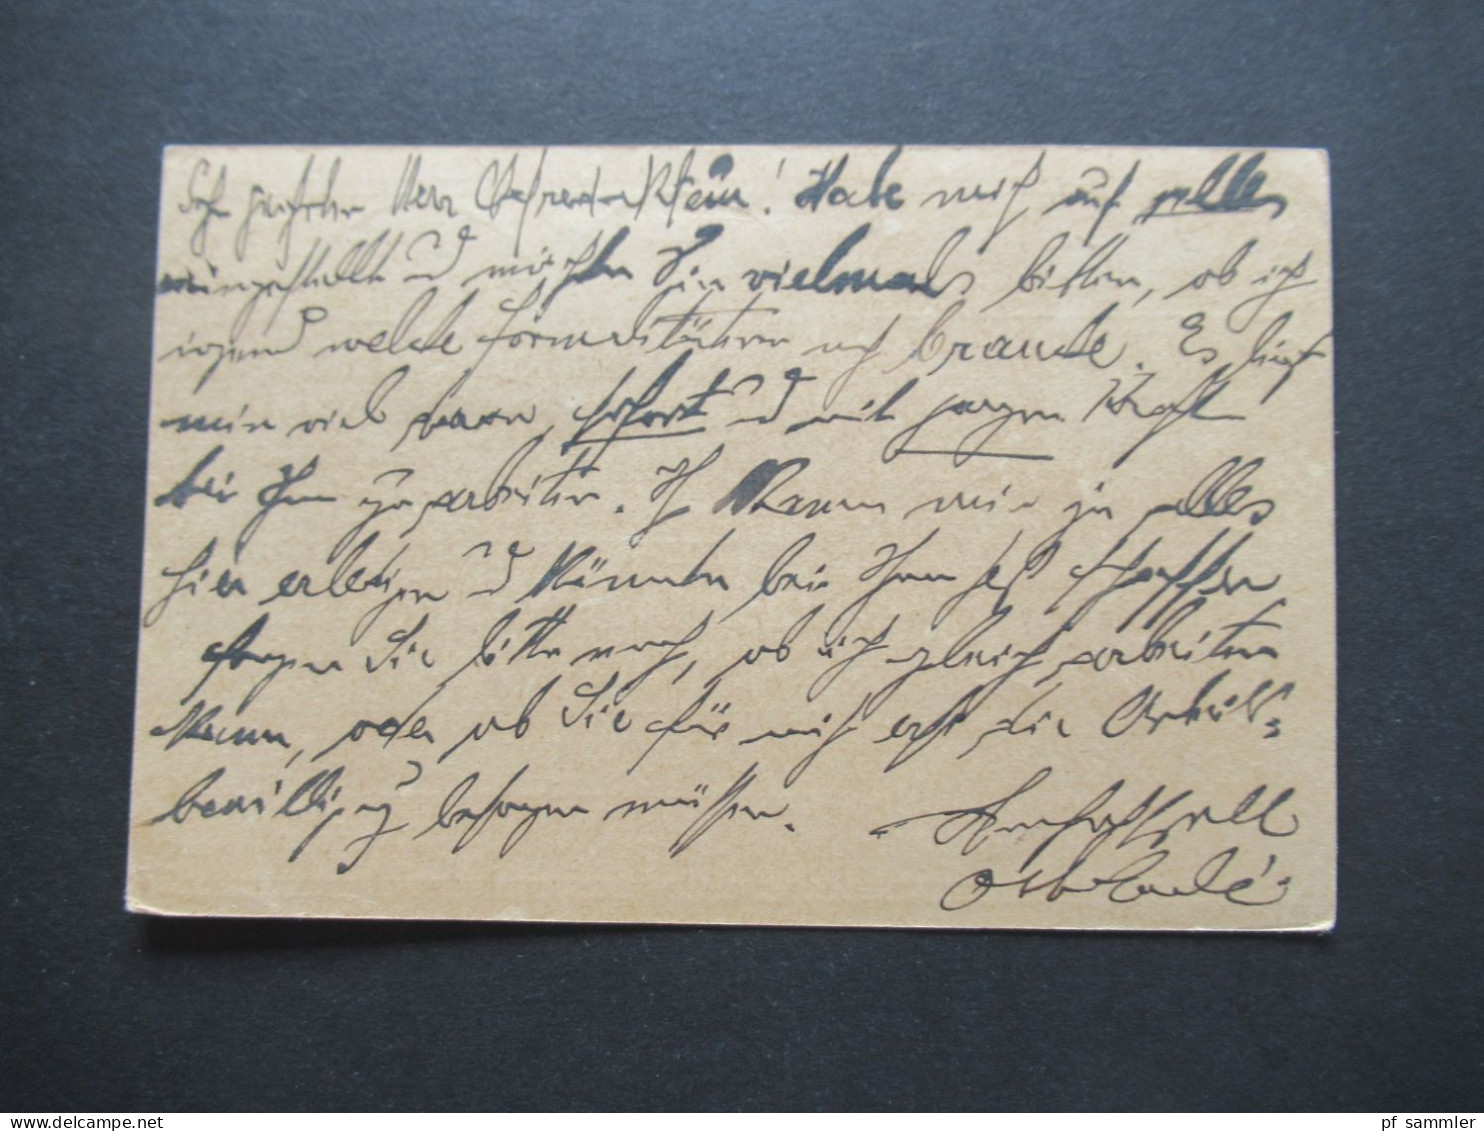 Sehr geehrter Herr Chefredakteur! Habe mich auf alles
eingestellt und möchte Sie vielmals bitten, ob ich
irgend welche Formalitäten noch brauche. Es liegt
mir viel daran, sofort und mit ganzer Kraft
bei Ihnen zu arbeiten. Ich kann mir ja alles
hier erledigen und könnte bei Ihnen schaffen.
Sagen Sie bitte noch, ob ich gleich arbeiten
kann, oder ob Sie für mich erst die Arbeits-
bewilligung besorgen müssen.
pf_sammler